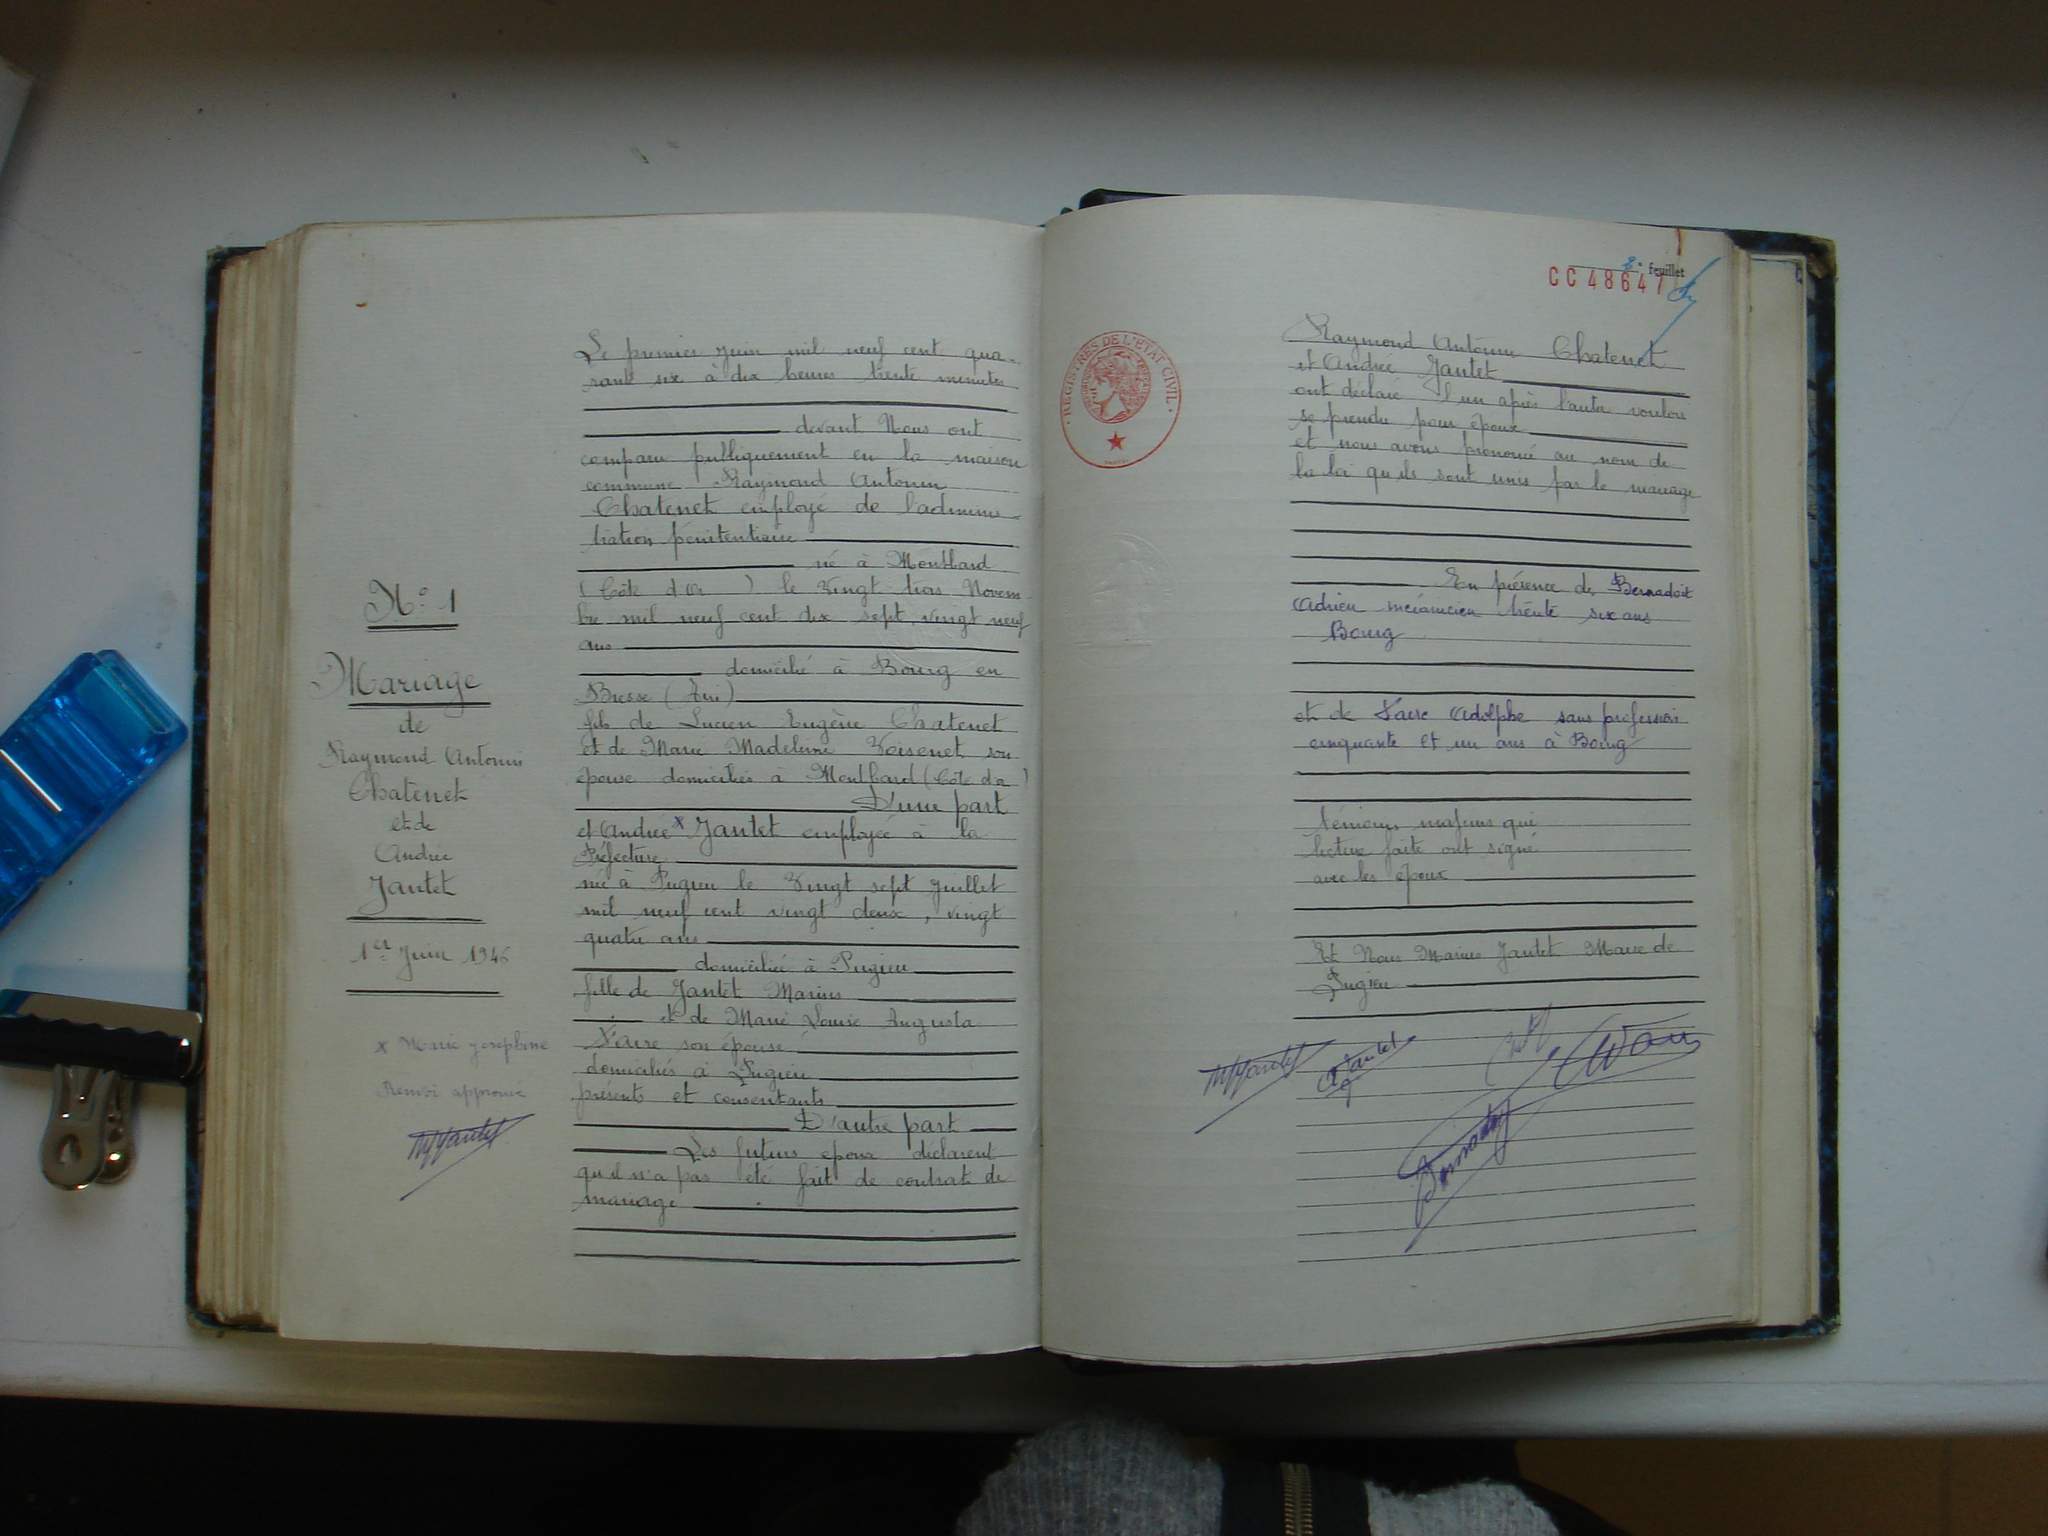 N° 1
Mariage
de
Raymond Antonin
Chatenet
et de
Andrée
Jantet
1er Juin 1946
x Marie Joséphine
Renvoi approuvé
Le premier Juin mil neuf cent qua-
rante six à dix heures trente minutes
devant Nous ont
comparu publiquement en la maison
commune Raymond Antonin
Chatenet employé de l'adminis-
tration pénitentiaire
né à Montbard
(Côte d'Or ) le Vingt trois Novem-
bre mil neuf cent dix sept, vingt neuf
ans
domicilié à Bourg en
Bresse (Ain)
fils de Lucien Eugène Chatenet
et de Marie Madeleine Voisenet son
épouse domiciliés à Montbard (Côte d'or )
D'une part
et Andrée x Jantet employée à la
Préfecture
née à Pugieu le Vingt sept Juillet
mil neuf cent vingt deux, vingt
quatre ans
domiciliée à Pugieu
fille de Jantet Marius
et de Marie Louise Augusta
Faire son épouse
domiciliés à Pugieu
présents et consentants
D'autre part
Les futurs époux déclarent
qu'il n'a pas été fait de contrat de
mariage
2e feuillet
CC 48647
REGISTRES DE L'ÉTAT CIVIL
Raymond Antonin Chatenet
et Andrée Jantet
ont déclaré l'un après l'autre vouloir
se prendre pour époux
et nous avons prononcé au nom de
la loi qu'ils sont unis par le mariage
En présence de Bernadoit
Adrien mécanicien trente six ans
Bourg
et de Faire Adolphe sans profession
cinquante et un ans à Bourg
témoins majeurs qui
lecture faite ont signé
avec les époux
Et Nous Marius Jantet Maire de
Pugieu
Jantet